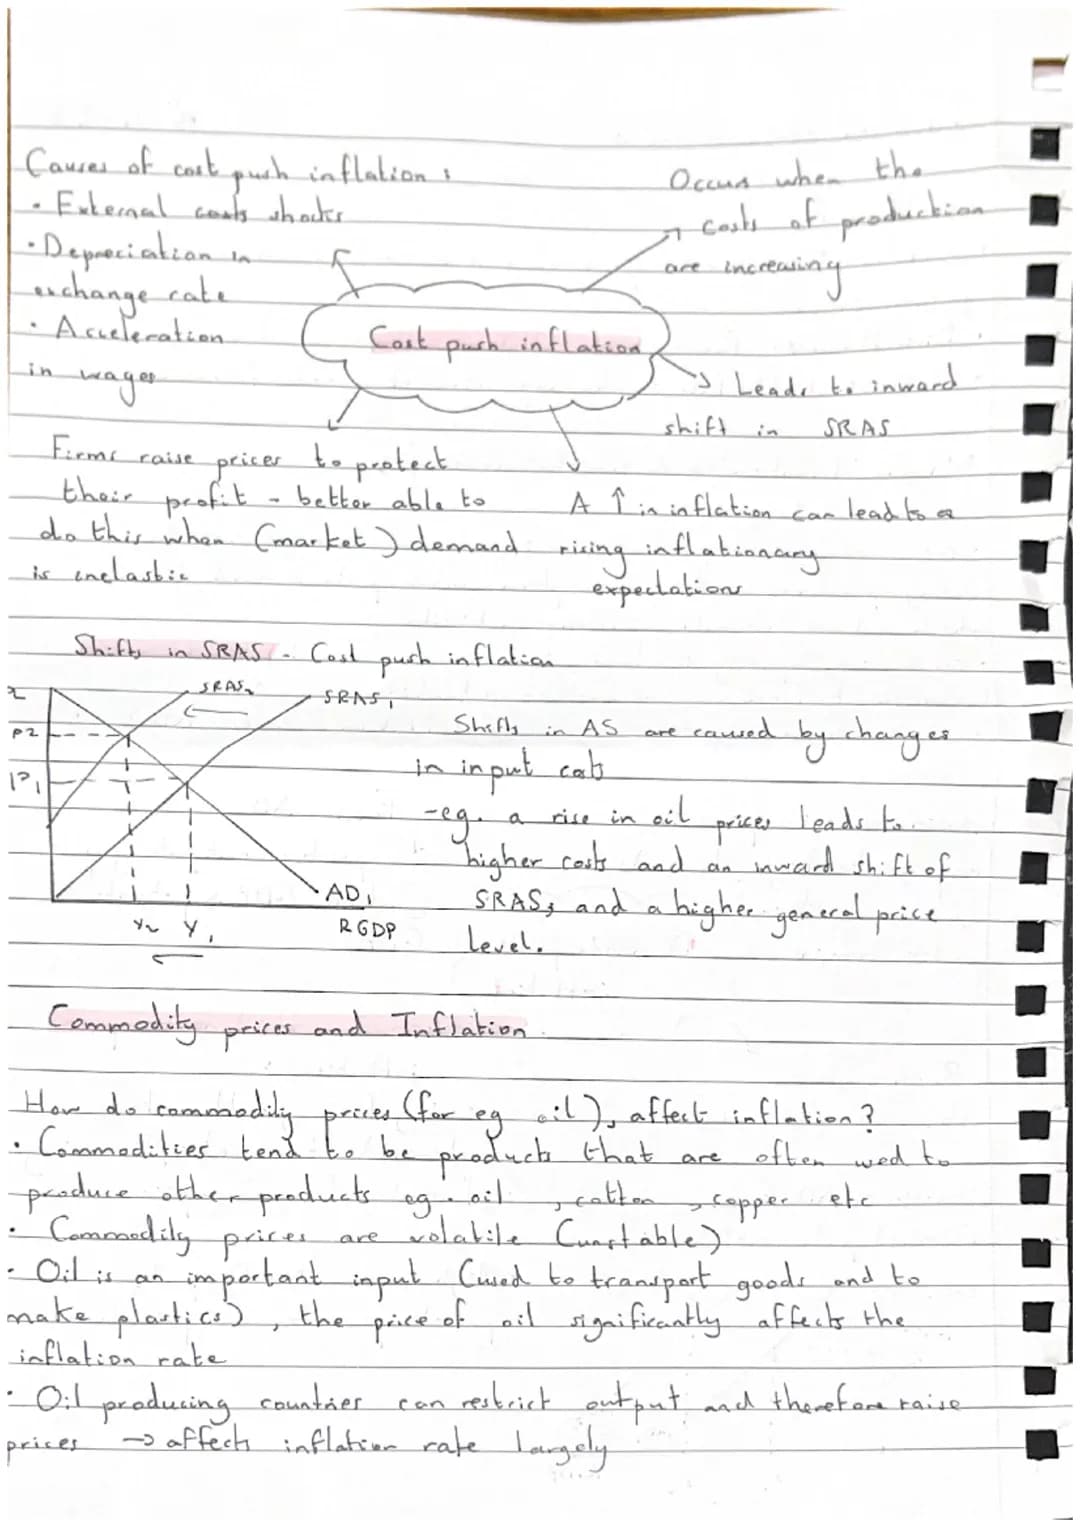 Causes of cost push inflation :
· External costs shocks
· Depreciation in
exchange rate
· Acceleration
in wages
Occurs when the
costs of production
are increasing
Cost push inflation
Leads to inward
shift in SRAS
Firms raise prices to protect
their profit - better able to
do this when (market) demand
is inelastic
A ↑ in inflation can lead to a
rising inflationary
expectations
Shifts in SRAS - Cost push inflation
SRAS2
SRAS1
P2
P1
AD1
Y2 Y1
RGDP
Shifts in AS are caused by changes
in input costs
-eg. a rise in oil prices leads to
higher costs and an inward shift of
SRAS, and a higher general price
level.
Commodity prices and Inflation
How do commodity prices (for eg oil), affect inflation?
· Commodities tend to be products that are often used to
produce other products eg. oil, cotton, copper etc
· Commodity prices are volatile (unstable)
· Oil is an important input (used to transport goods and to
make plastics), the price of oil significantly affects the
inflation rate
· Oil producing countries can restrict output and therefore raise
prices → affects inflation rate largely